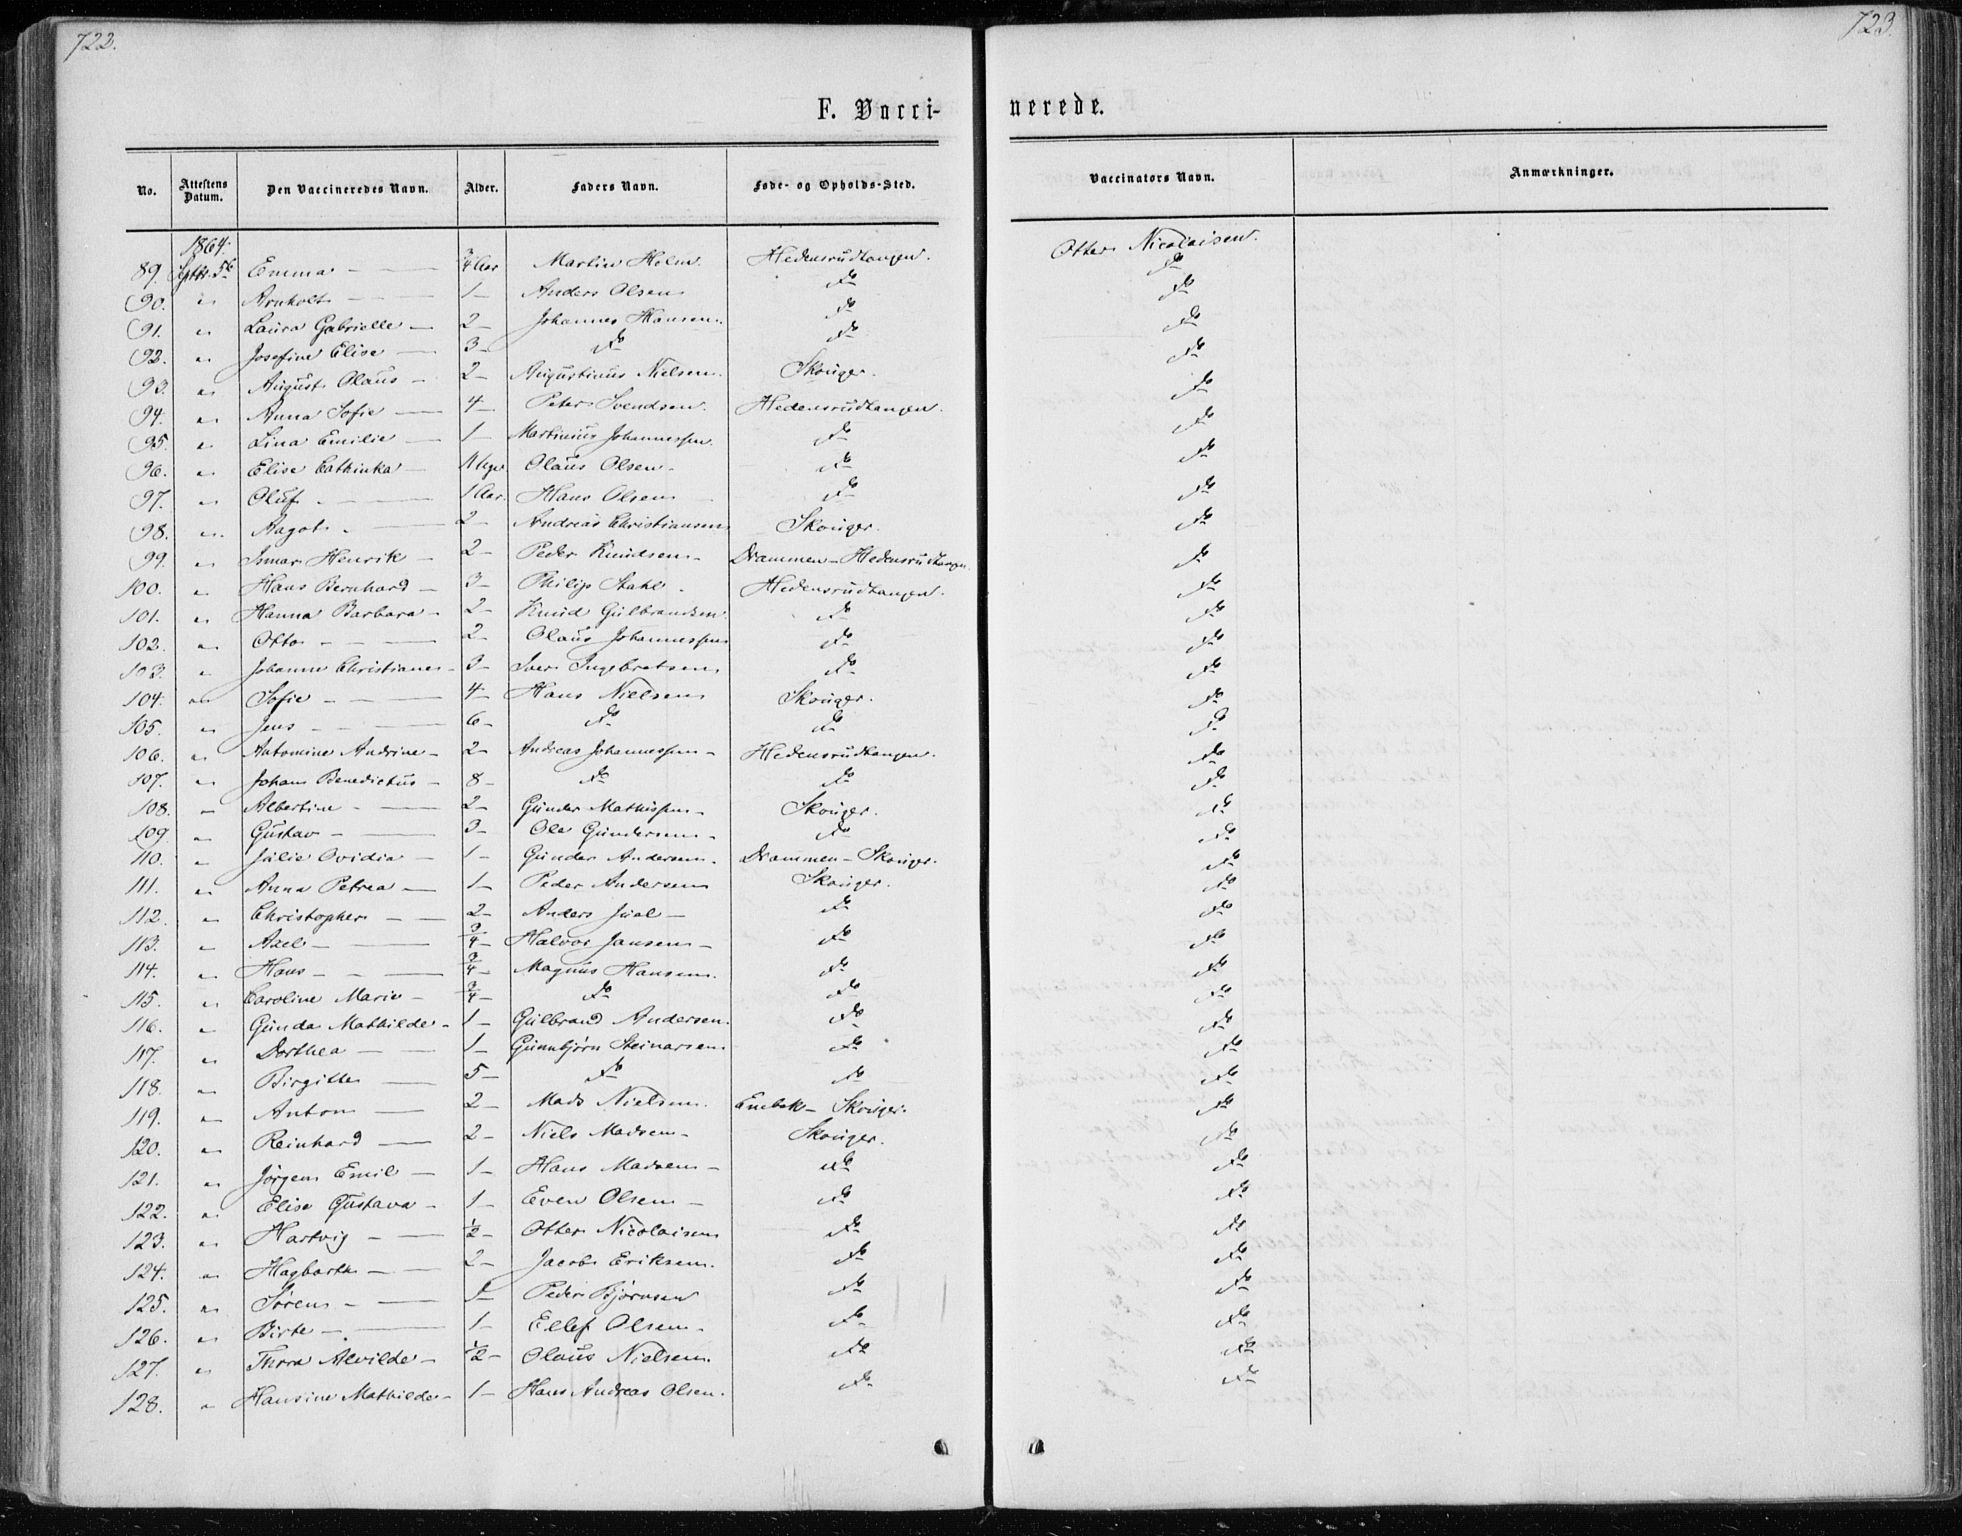 722.
723.
F. Vacci-
nerede.
No. Attestens Datum. Den Vaccineredes Navn. Alder. Faders Navn. Føde- og Opholds-Sted. Vaccinators Navn. Anmærkninger.
1864.
89. Emma — 3/4 Aar Martin Holm. Hedensrudtangen. Otter Nicolaisen.
90. " Arnholt — 1 — Anders Olsen do do
91. " Laura Gabrielle — 2 — Johannes Hansen. do do
92. " Josefine Elise — 3 — do do do
93. " August Olaus — 2 — Augustinus Nielsen. Skouger. do
94. " Anna Sofie — 4 — Peter Svendsen. Hedensrudtangen. do
95. " Lina Emilie — 1 — Martinius Johannessen. do do
96. " Elise Cathinka — Olaus Olsen. do do
97. " Oluf — 1 Aar. Hans Olsen do do
98. " Aagot — 2 — Andreas Christiansen Skouger. do
99. " Ismar Henrik — 2 — Peder Knudsen — Drammen — Hedensrudtangen. do
100. " Hans Bernhard — 3 — Philip Stahl. Hedensrudtangen. do
101. " Hanna Barbara — 2 — Knud Gulbrandsen do do
102. " Otto — 2 — Olaus Johannessen do do
103. " Johanne Christiane — 3 — Iver Ingebretsen do do
104. " Sofie — 4 — Hans Nielsen Skouger. do
105. " Jens — 6 — do do do
106. " Antomine Andrine — 2 — Andreas Johannessen — Hedensrudtangen. do
107. " Johan Benedictus — 8 — do do do
108. " Albertine — 2 — Gunder Mathissen — Skouger. do
109. " Gustav — 3 — Ole Gundersen — do do
110. " Julie Ovidia — 1 — Gunder Andersen. Drammen — Skouger. do
111. " Anna Petrea — 1 — Peder Andersen Skouger. do
112. " Christopher — 2 — Anders Jual — do do
113. " Axel — 3/4 — Halvor Jansen — do do
114. " Hans — 3/4 — Magnus Hansen. do do
115. " Caroline Marie — 3/4 — do do do
116. " Gunda Mathilde — 1 — Gulbrand Andersen. do do
117. " Dorthea — 1 — Gunnbjørn Steinarsen do do
118. " Birgitte — 5 — do do do
119. " Anton — 2 — Mads Nielsen. Enebak — Skouger. do
120. " Reinhard — 2 — Niels Madsen — Skouger. do
121. " Jørgen Emil — 1 — Hans Madsen — do do
122. " Elise Gustava — 1 — Even Olsen — do do
123. " Hartvig — 1/2 — Otter Nicolaisen do do
124. " Hagbarth — 2 — Jacob Eriksen. do do
125. " Søren — Peder Bjørnsen do do
126. " Birte — 1 — Ellef Olsen — do do
127. " Thora Alvilde — 1/2 — Olaus Nielsen. do do
128. " Hansine Mathilde — 1 — Hans Andreas Olsen. do do